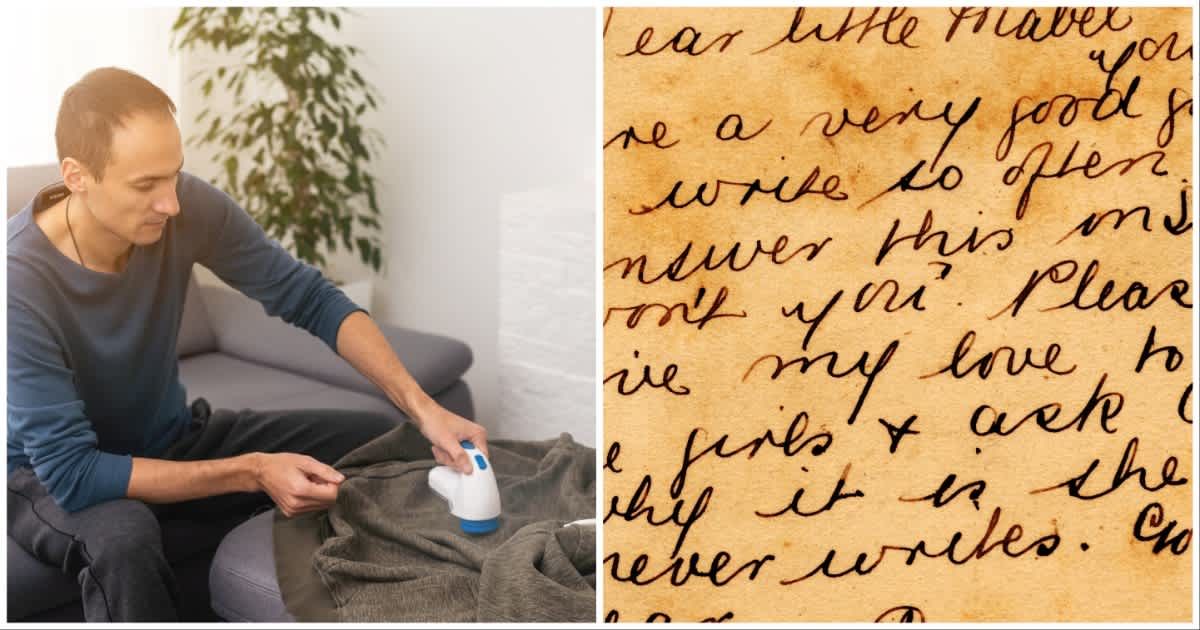 ear little Mabel
"You
re a very good g
write so often.
nswer this ins
on't you". Pleas
ive my love to
e girls & ask
why it is she
never writes. Go